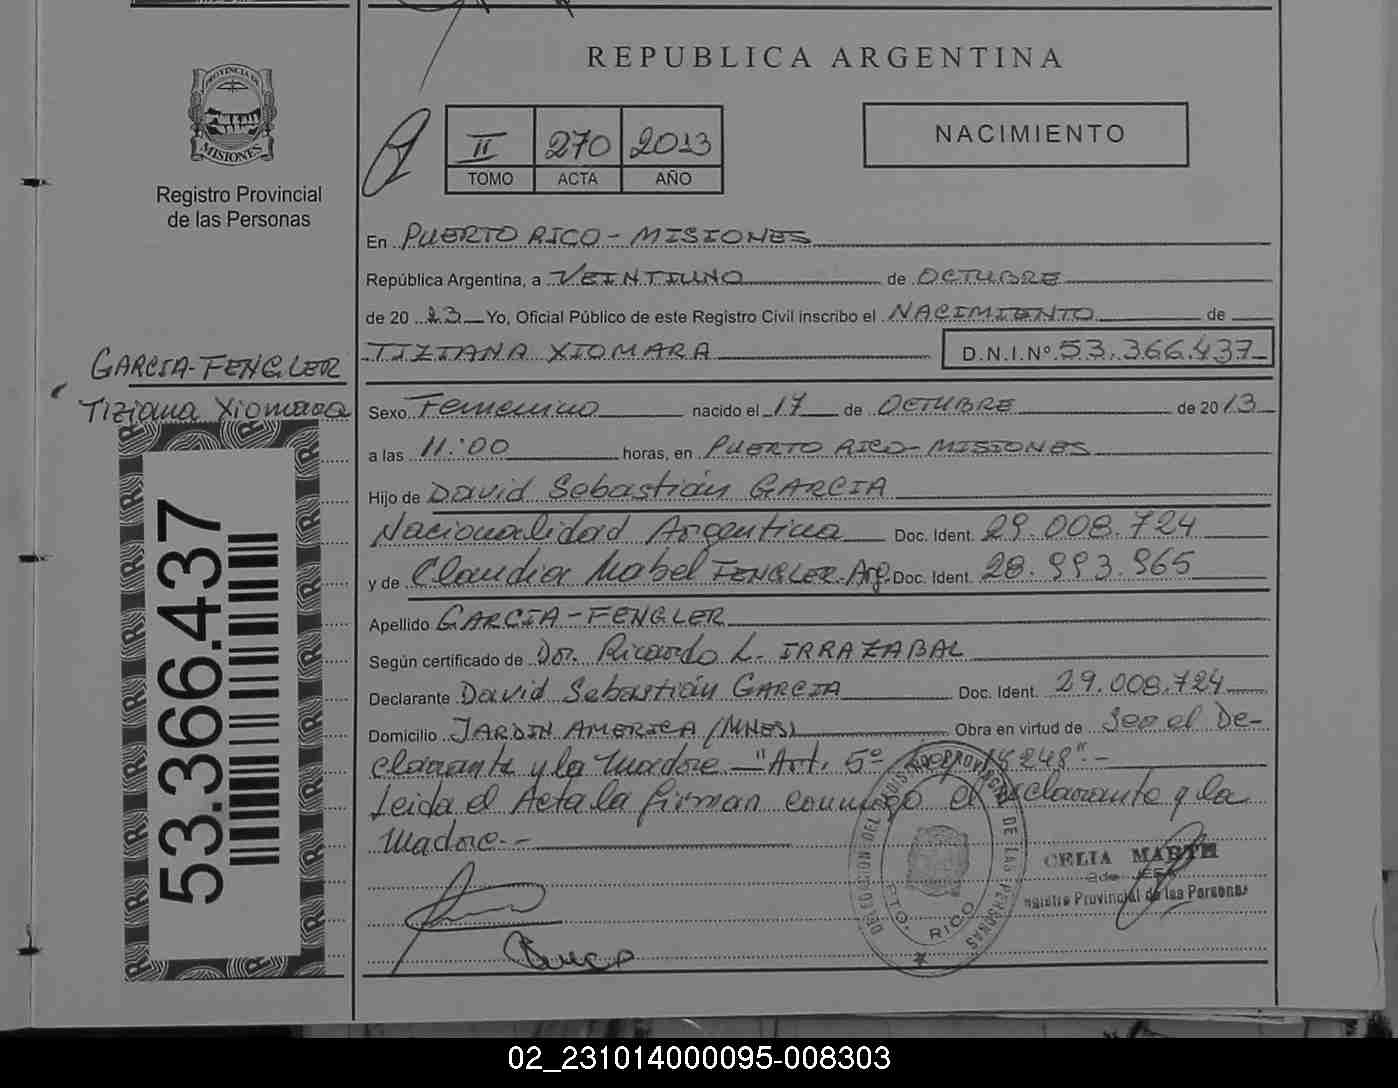 REPUBLICA ARGENTINA
PROVINCIA DE
MISIONES
Registro Provincial
de las Personas
II 270 2013
TOMO ACTA AÑO
NACIMIENTO
En PUERTO RICO - MISIONES
República Argentina, a VEINTIUNO de OCTUBRE
de 20 13 Yo, Oficial Público de este Registro Civil inscribo el NACIMIENTO de
TIZIANA XIOMARA D.N.I.Nº 53.366.437
GARCIA-FENGLER
Tiziana Xiomara
Sexo Femenino nacido el 17 de OCTUBRE de 2013
a las 11:00 horas, en PUERTO RICO - MISIONES
Hijo de David Sebastián GARCIA
Nacionalidad Argentina Doc. Ident. 29.008.724
y de Claudia Mabel FENGLER-Arg. Doc. Ident. 28.993.965
Apellido GARCIA-FENGLER
Según certificado de Dr. Ricardo L. IRRAZABAL
Declarante David Sebastián GARCIA Doc. Ident. 29.008.724
Domicilio JARDIN AMERICA (MNES) Obra en virtud de Ser el De-
clarante y la Madre - "Art. 5º 18248".-
Leida el Acta la firman conmigo el declarante y la
Madre.-
53.366.437
CELIA MARTH
Registro Provincial de las Personas
DELEGACION DEL REGISTRO PROVINCIAL DE LAS PERSONAS
PTO. RICO
02_231014000095-008303